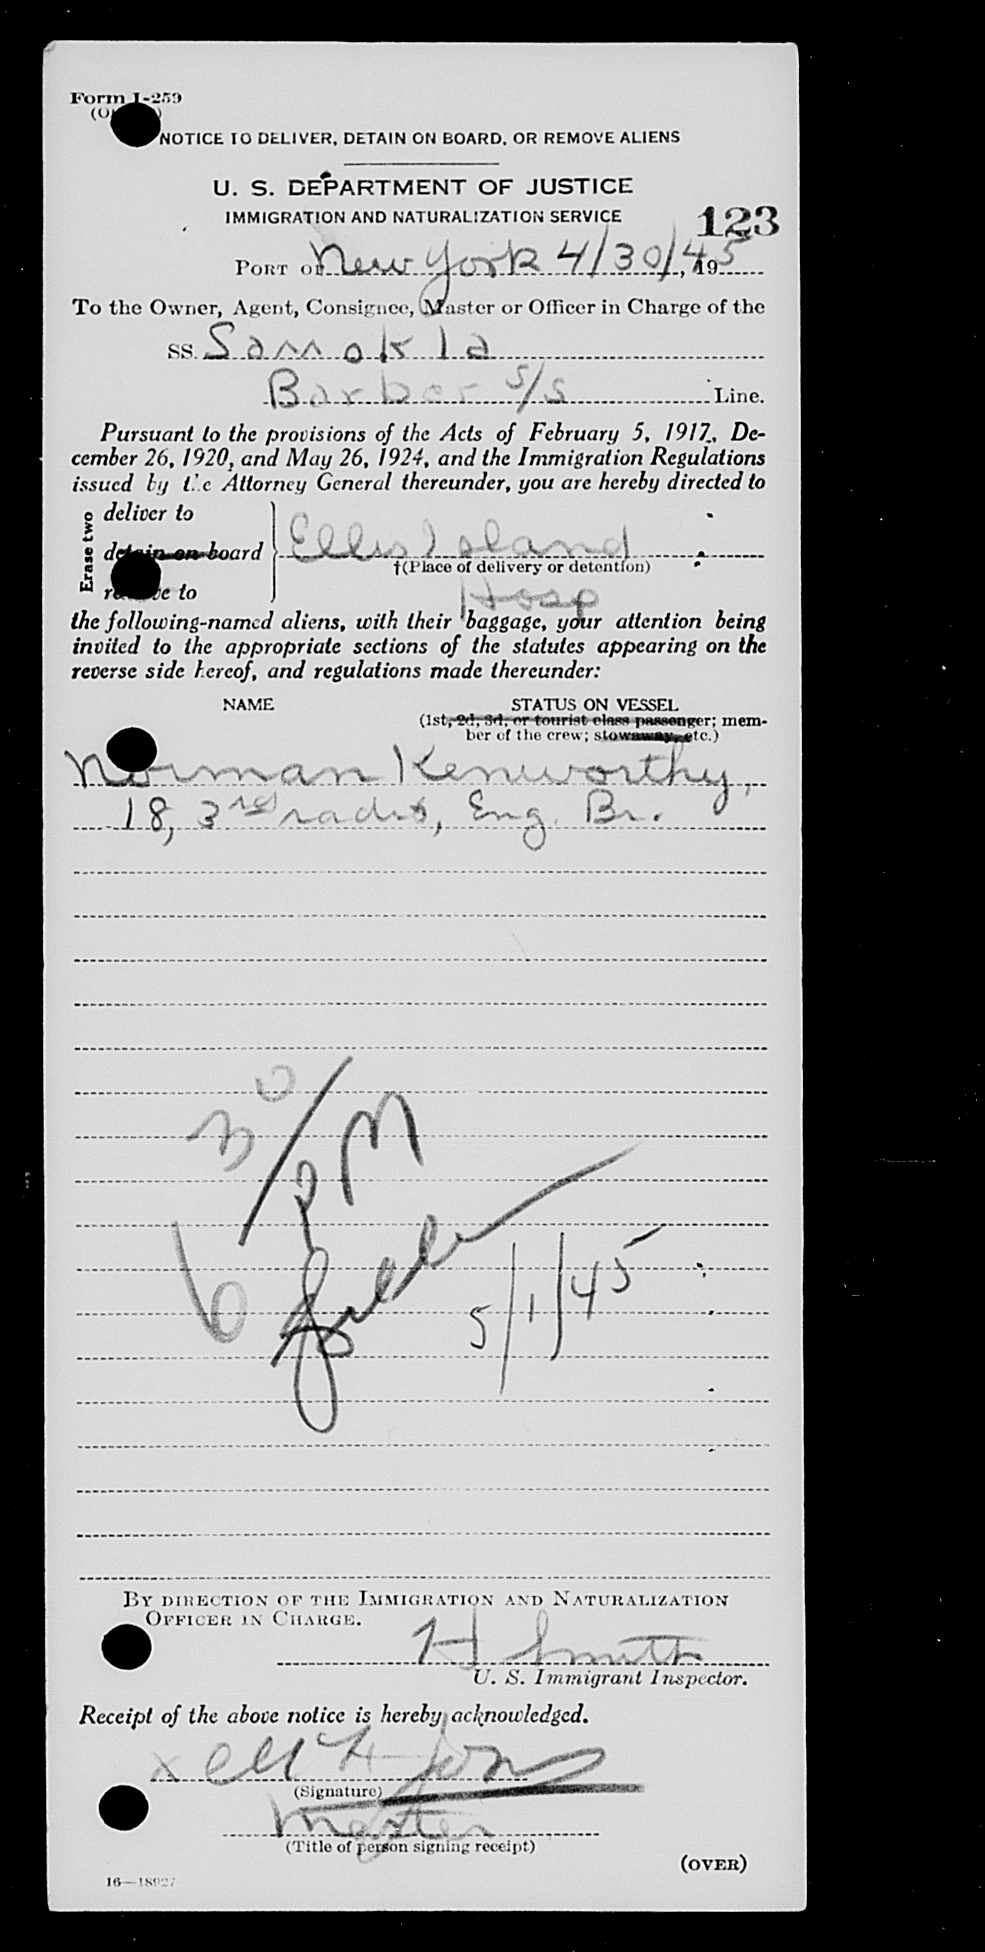 Form I-259
NOTICE TO DELIVER, DETAIN ON BOARD, OR REMOVE ALIENS
U. S. DEPARTMENT OF JUSTICE
IMMIGRATION AND NATURALIZATION SERVICE
123
PORT OF New York 4/30/45, 19
To the Owner, Agent, Consignee, Master or Officer in Charge of the
SS. Samokla
Barber S/S Line.
Pursuant to the provisions of the Acts of February 5, 1917, De-
cember 26, 1920, and May 26, 1924, and the Immigration Regulations
issued by the Attorney General thereunder, you are hereby directed to
Erase two
deliver to
detain on board Ellis Island
†(Place of delivery or detention)
remove to
Hosp
the following-named aliens, with their baggage, your attention being
invited to the appropriate sections of the statutes appearing on the
reverse side hereof, and regulations made thereunder:
NAME STATUS ON VESSEL
(1st, 2d, 3d, or tourist class passenger; mem-
ber of the crew; stowaway, etc.)
Norman Kenworthy,
18, 3rd radio, Eng. Br.
6 30/PM
5/1/45
BY DIRECTION OF THE IMMIGRATION AND NATURALIZATION
OFFICER IN CHARGE.
H Smith
U. S. Immigrant Inspector.
Receipt of the above notice is hereby acknowledged.
x
(Signature)
Master
(Title of person signing receipt)
(OVER)
16—18927